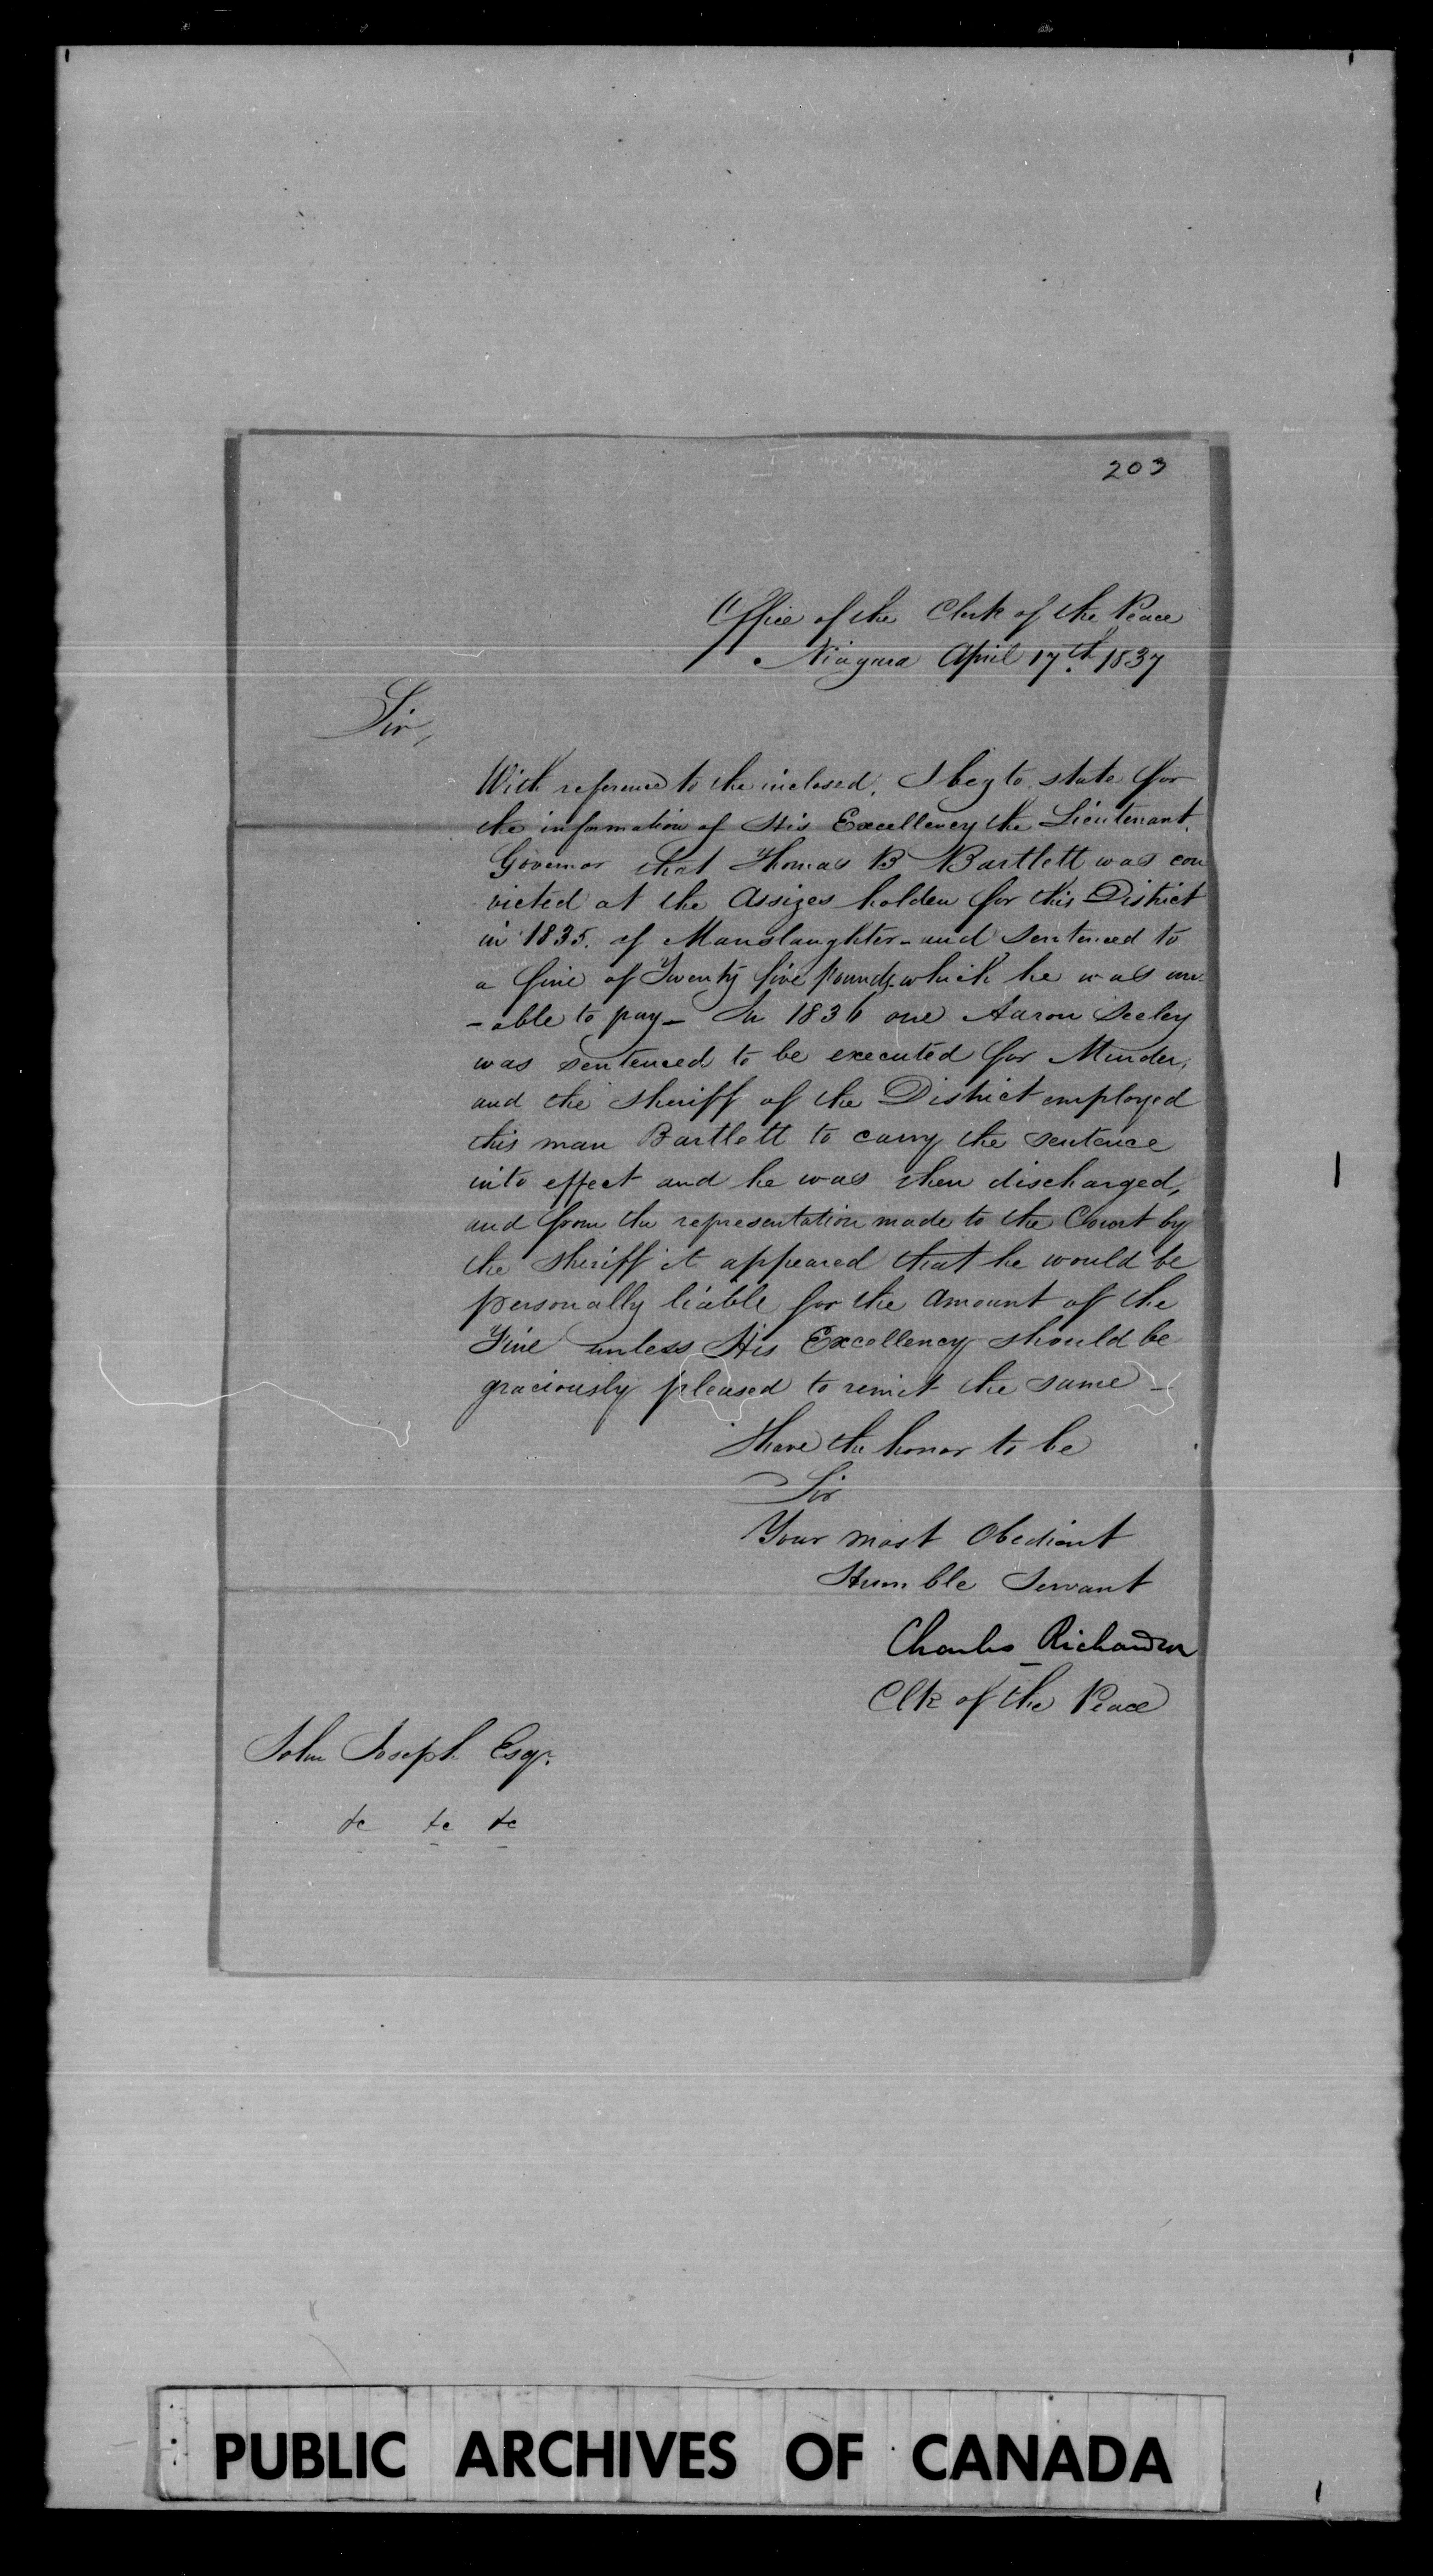 203
Office of the Clerk of the Peace
Niagara April 17th 1837
Sir,
With reference to the inclosed, I beg to state for
the information of His Excellency the Lieutenant
Governor that Thomas B Bartlett was con
victed at the Assizes holden for this District
in 1835. of Manslaughter - and sentenced to
a fine of Twenty five pounds - which he was un-
- able to pay - In 1836 one Aaron Seeley
was sentenced to be executed for Murder,
and the Sheriff of the District employed
this man Bartlett to carry the sentence
into effect and he was then discharged,
and from the representation made to the Court by
the Sheriff it appeared that he would be
personally liable for the amount of the
Fine unless His Excellency should be
graciously pleased to remit the same -
I have the honor to be
Sir
Your most Obedient
Humble Servant
Charles Richardson
Clk of the Peace
John Joseph Esqr.
&c &c &c
PUBLIC ARCHIVES OF CANADA